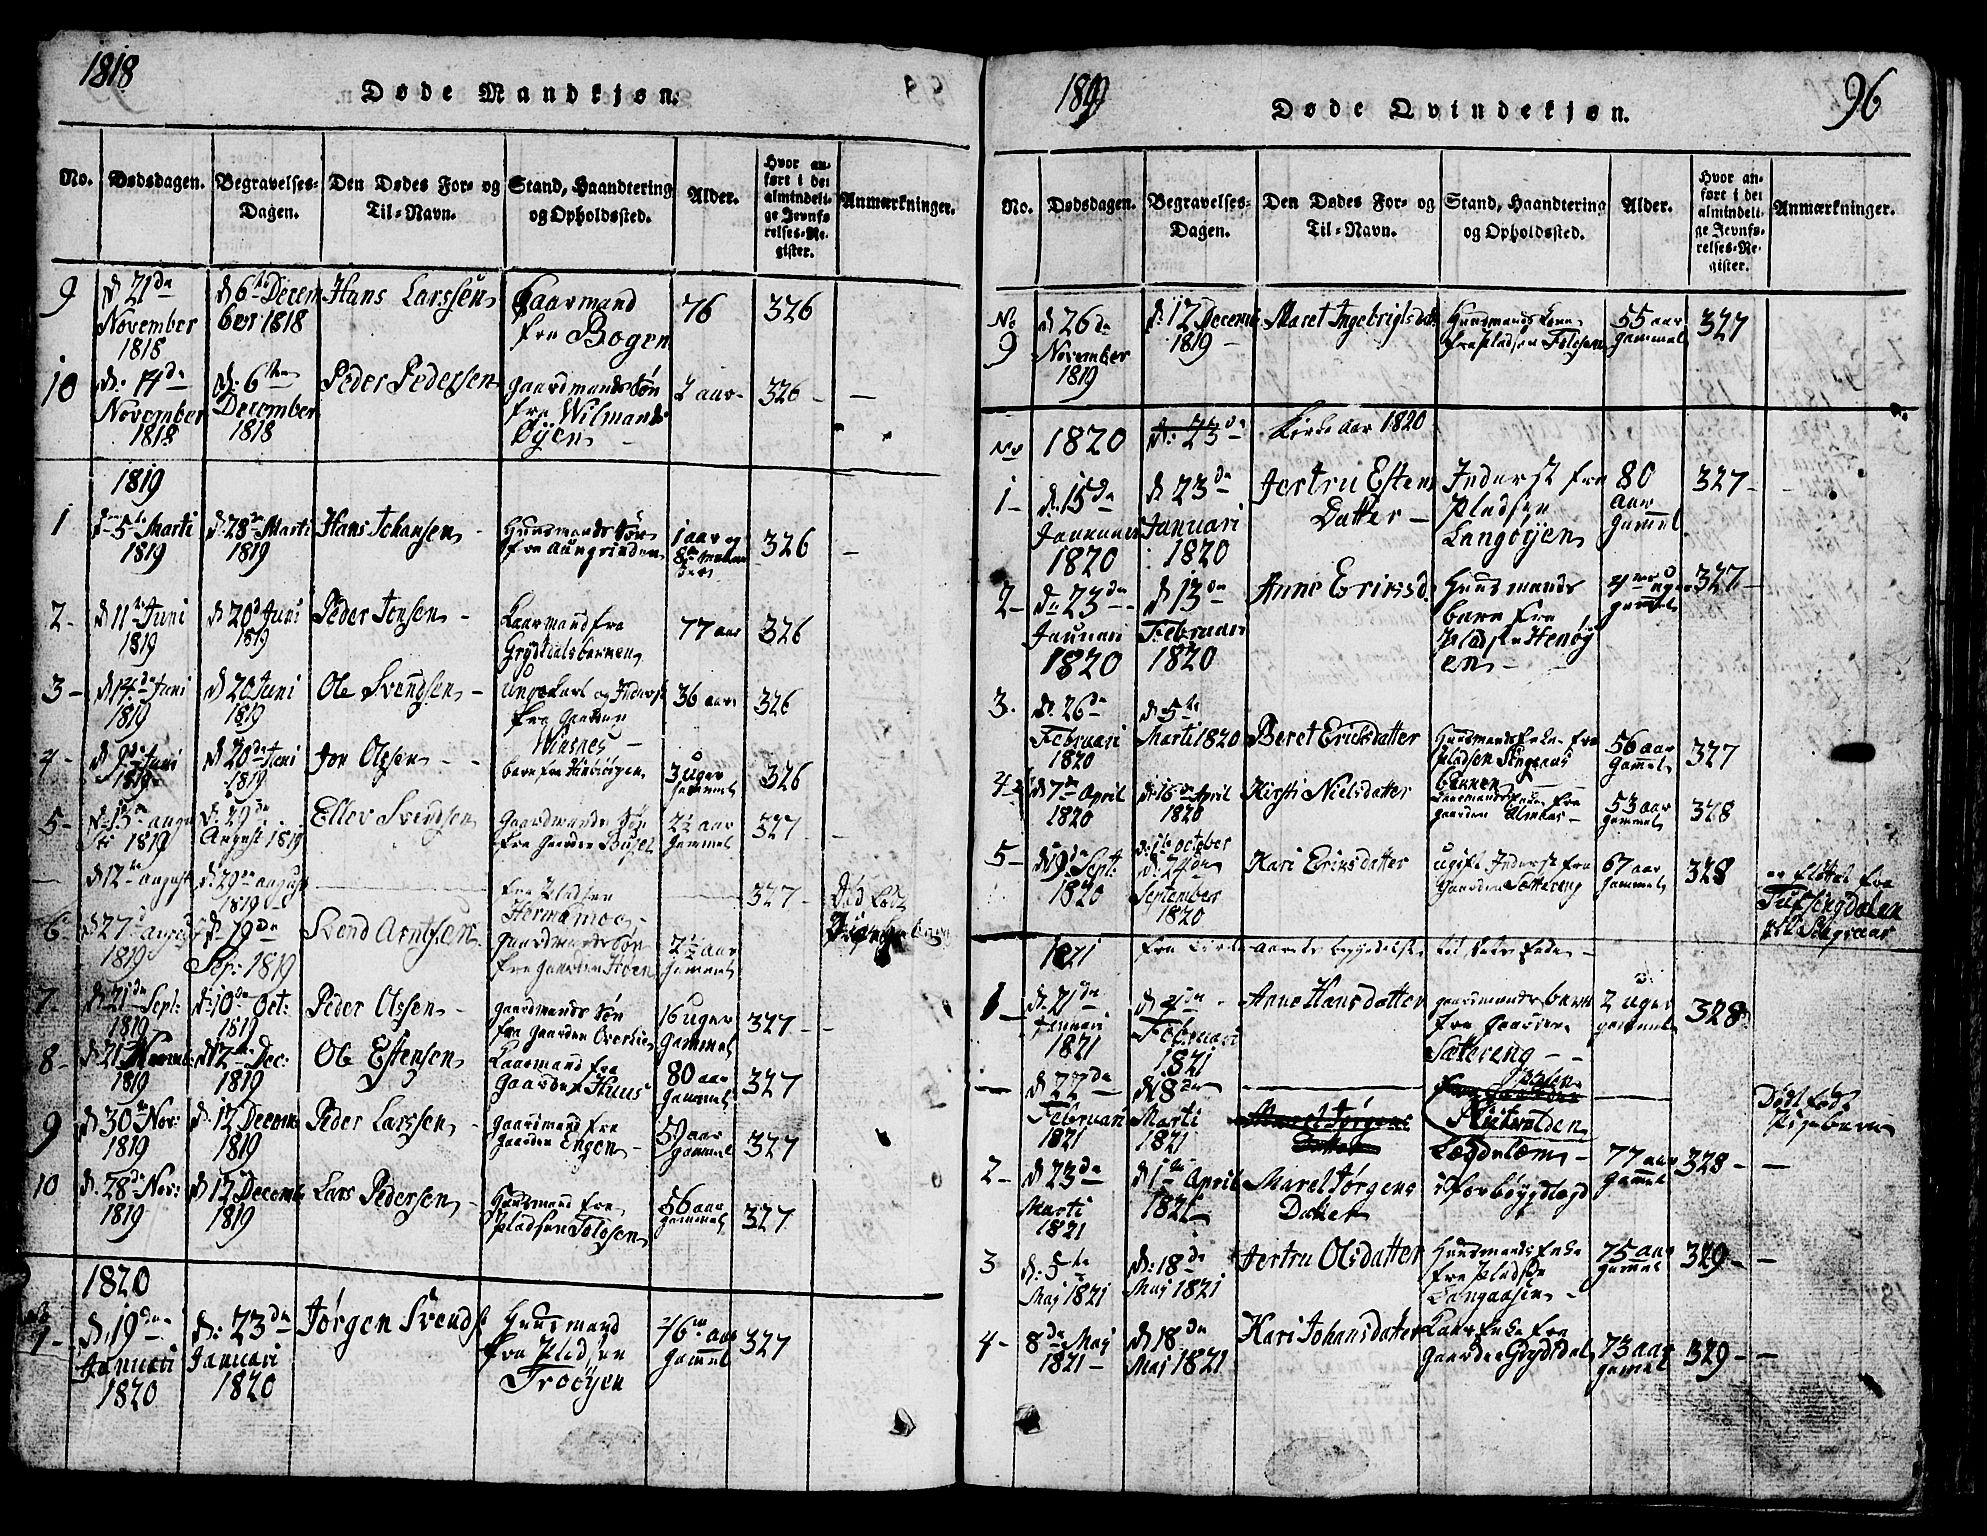 1818
Døde Mandkjøn.
No.
Dødsdagen.
Begravelses-
Dagen.
Den Dødes For- og
Til-Navn.
Stand, Haandtering
og Opholdssted.
Alder.
Hvor an-
ført i det
almindeli-
ge Jevnfø-
relses-Re-
gister.
Anmærkninger.
9
d 21de
November
1818
d 6te Decem
ber 1818
Hans Larssen
Kaarmand
fra Bogen
76
326
10
d: 14de
November
1818
d: 6te
December
1818
Peder Pedersen
gaardmands Søn
fra Wilmands
Øyen
2 aar
326
1819
1
5te Marti
1819
d 28de Marti
1819
Hans Johansen
Huusmands Søn
fra Aungrinden
1 aar og
326
2
d 11te Juni
1819
d 20de Juni
1819
Peder Jonsen
Kaarmand fra
77 aar
326
3
d 14de Juni
1819
d 20de Juni
1819
Ole Svendsen
ungekarl og Inderst
fra Gaarden
Winsnes
36 aar
326
4
d 9de Juni
1819
d 20de Juni
1819
Jon Olssen
barn fra
3 uger
gammel
326
5
d: 13de augu
sti 1819
d: 29de
August 1819
Ellev Svendsen
Gaardmands Søn
fra Gaarden
2½ aar
Gammel
327
d 12te august
d: 29de august
1819
fra Pladsen
Hermamoe
327
Død fød
6
d 27de august
1819
d: 19de
Sep: 1819
Svend Arntsen
Gaardmands Søn
fra gaarden Moen
2½ aar
Gammel
327
7
d: 21de Sept:
1819
d: 10de Oct:
1819
Peder Olssen
gaardmands Søn
fra Gaarden
16 uger
Gammel
327
8
d 21 Novemb:
1819
d 12te Dec:
1819
Ole Estensen
Kaarmand fra
Gaarden Huus
80 aar
Gammel
327
9
d 30te Nov:
1819
d: 12 Decemb
1819
Peder Larssen
gaardmand fra
Gaarden Engen
59 aar
gammel
327
10
d: 28de Nov:
1819
d 12 Decemb
1819
Lars Pedersen
Huusmand fra
Pladsen Folosen
56 aar
gammel
327
1820
1
d: 19de
Januari
1820
d: 23de
Januari
1820
Jørgen Svends
Huusmand
fra Pladsen
Trooyen
46 aar
Gammel
327
1819
96
Døde Qvindekjøn.
No.
Dødsdagen.
Begravelses-
Dagen.
Den Dødes For- og
Til-Navn.
Stand, Haandtering
og Opholdssted.
Alder.
Hvor an-
ført i det
almindeli-
ge Jevnfø-
relses-Re-
gister.
Anmærkninger.
No
9
d 26de
November
1819
d: 12 Decemb
1819
Maret Ingebrigtsdat
Huusmands kone
fra Pladsen Folosen
55 aar
Gammel
327
No
1820
d: 23de
Kirke Aar 1820
1
d: 15de
Januari
1820
d 23de
Januari
1820
Jertru Estens
Datter
Inderst fra
Pladsen
Langøyen
80
Aar
Gammel
327
2
d: 23de
Januari
1820
d 13de
Februari
1820
Anne Ericsd.
Huusmands
barn fra
Pladsen Henøy
en
4 uger
gammel
327
3
d: 26de
Februari
1820
d: 5te
Marti 1820
Beret Ericsdatter
Huusmands Enke fra
Pladsen
bakken
56 aar
Gammel
327
4
d 7de April
1820
d: 16de April
1820
Kirsti Nielsdatter
Gaarden Almaas
53 aar
Gammel
328
5
d 19de Sept:
1820
d: 1te october
d: 24de
September
1820
Kari Ericsdatter
ugift Inderst fra
Gaarden Sættereng
67 aar
Gammel
328
er fløttet fra
Tufsengdalen
1821
fra Kirke Aarets begyndelse
1
d: 21de
Januari
1821
d 4de
Februari
1821
Anne Hansdatter
gaardmands barn
fra gaarden
Sættereng
2 uger
gammel
328
d 22de
Februari
1821
d 18de
Marti
1821
Marel Jørgens
Datter
Pladsen
Qvitvolden
Dødfødt
Pigebarn
2
d 23de
Marti
1821
d 1te April
1821
Marel Jørgens
Datter
Lægdelæm
77 aar
Gammel
328
3
d: 5te
Maj 1821
d: 18de
Maj 1821
Jertru Olsdatter
Huusmands Enke
fra Pladsen
Langaasen
75 aar
gammel
329
4
8de Maj
1821
d 18de
Maj 1821
Kari Johansdatter
Kaar Enke fra
Gaarden Grydtdal
73 aar
Gammel
329